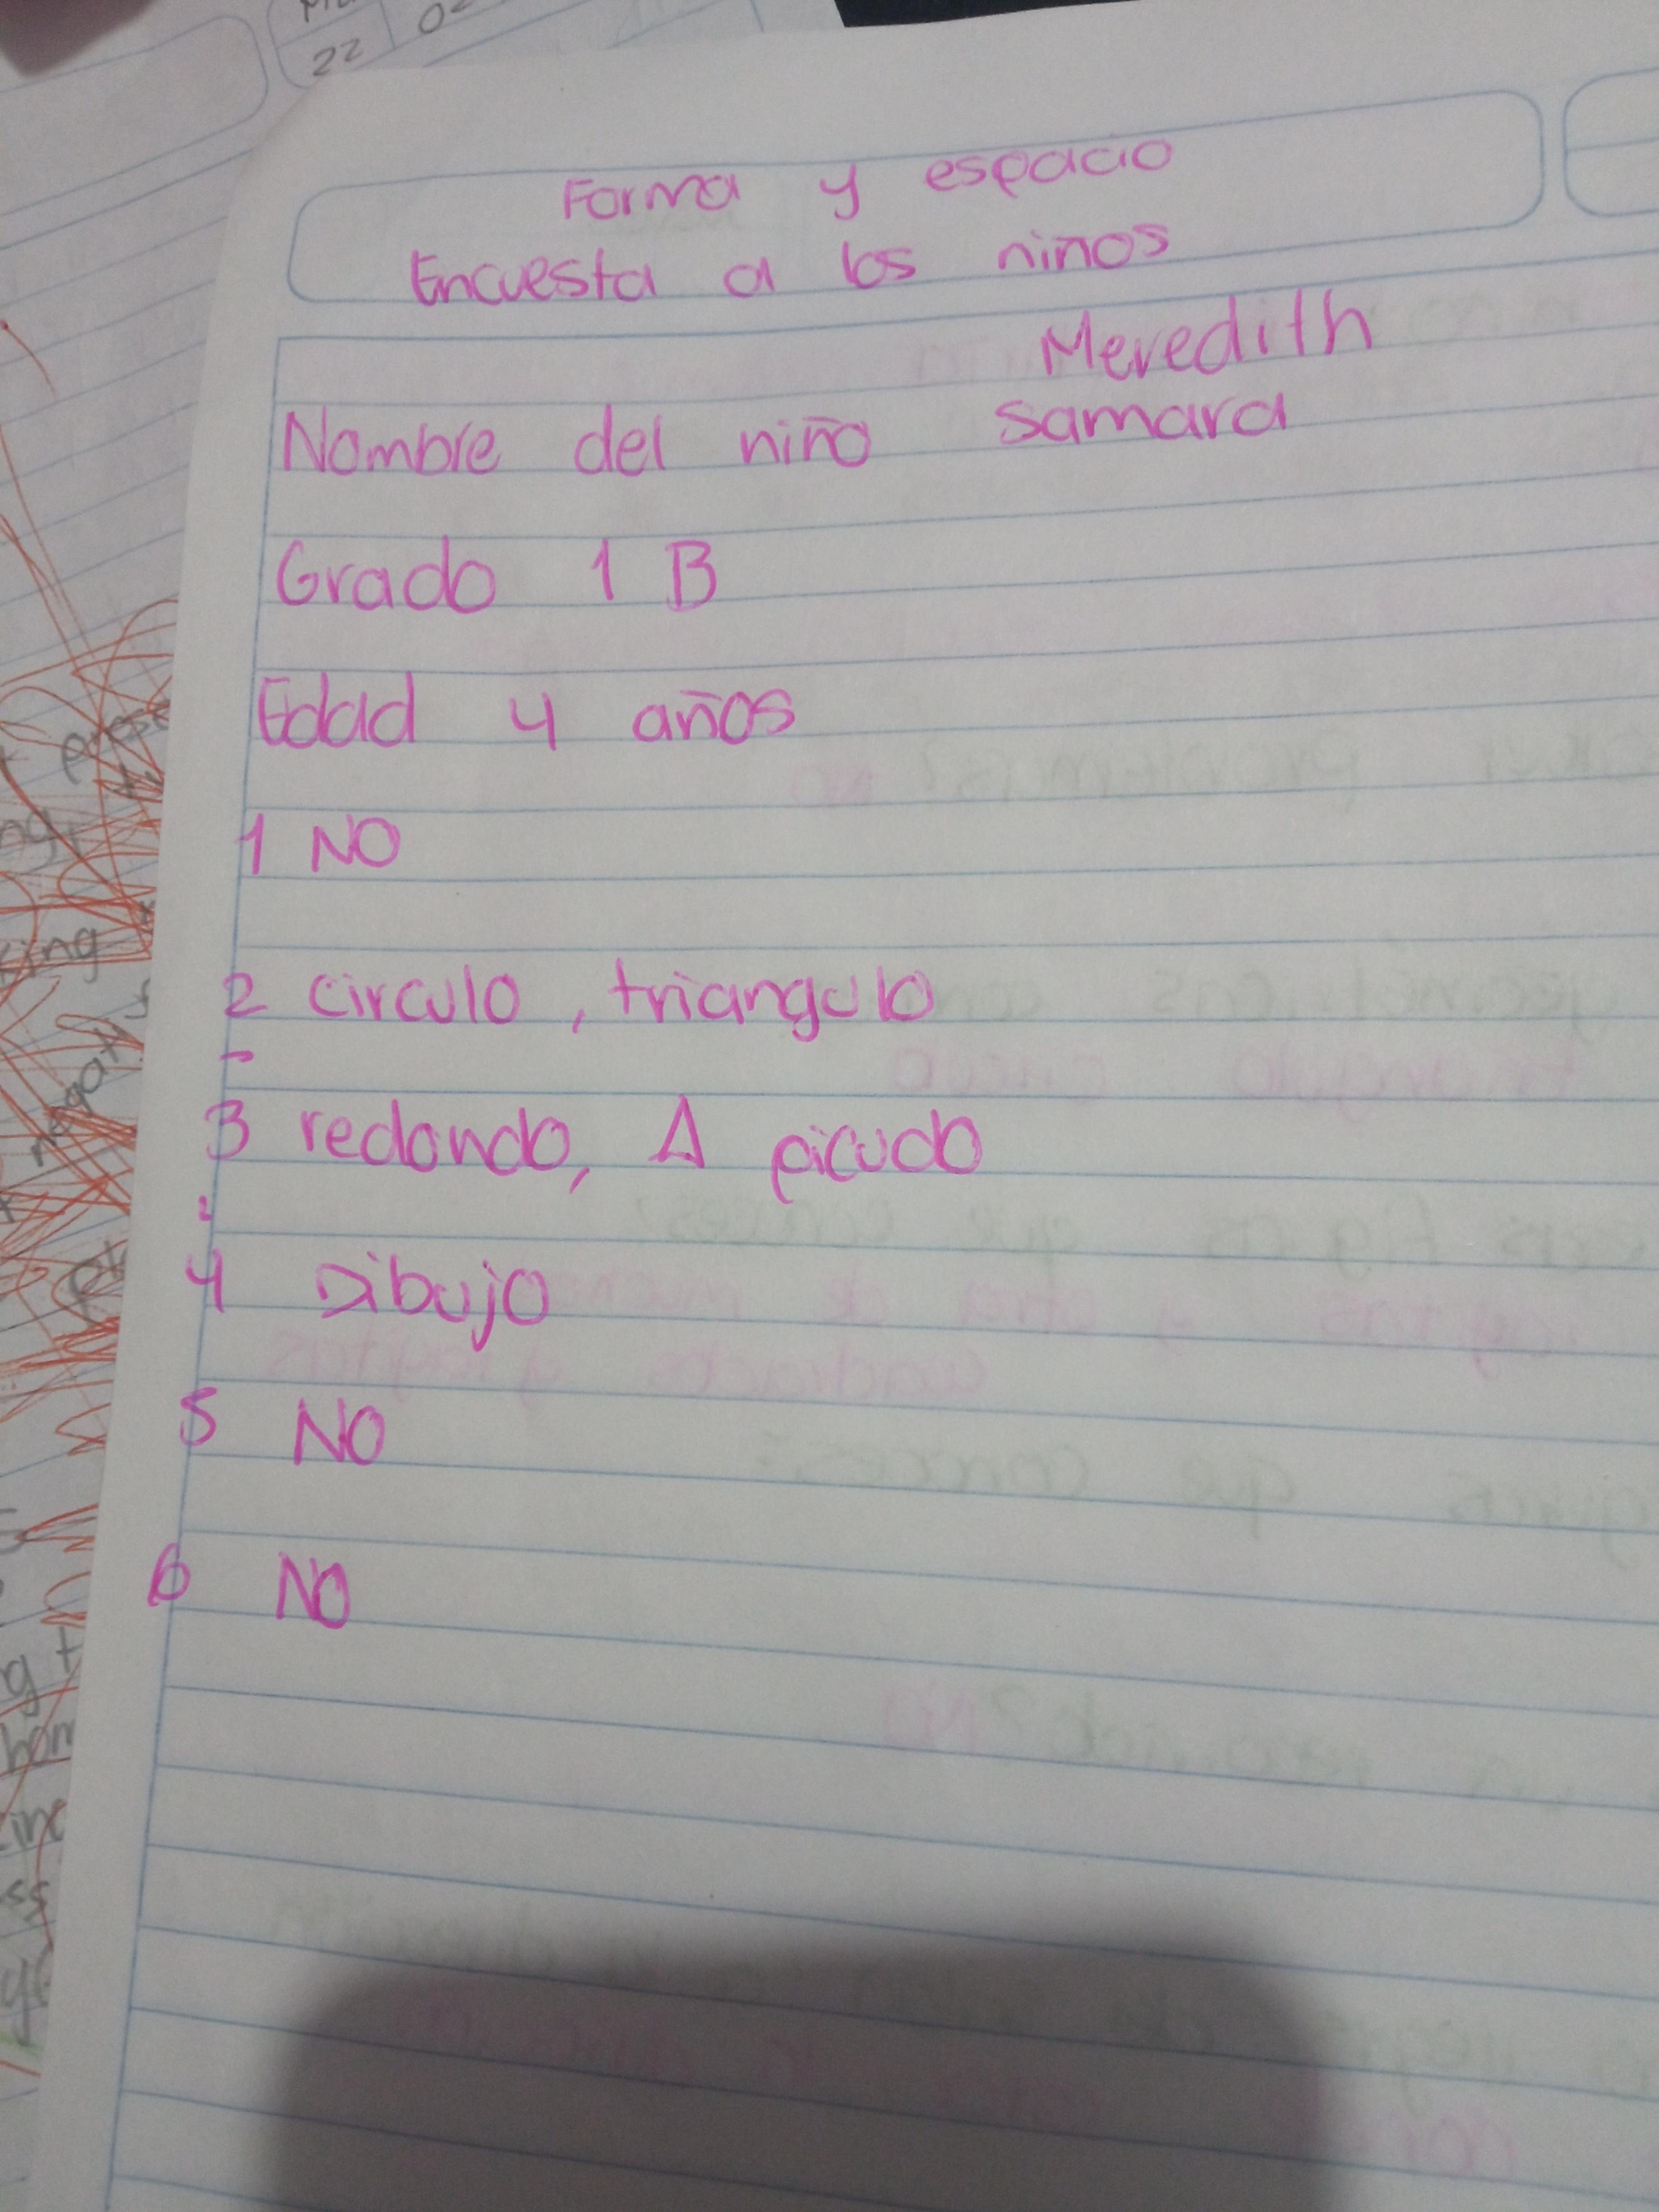 22
Forma y espacio
Encuesta a los niños
Meredith
Nombre del niño Samara
Grado 1 B
Edad 4 años
1 NO
2 circulo, triangulo
3 redondo, Δ picudo
4 Dibujo
5 NO
6 NO